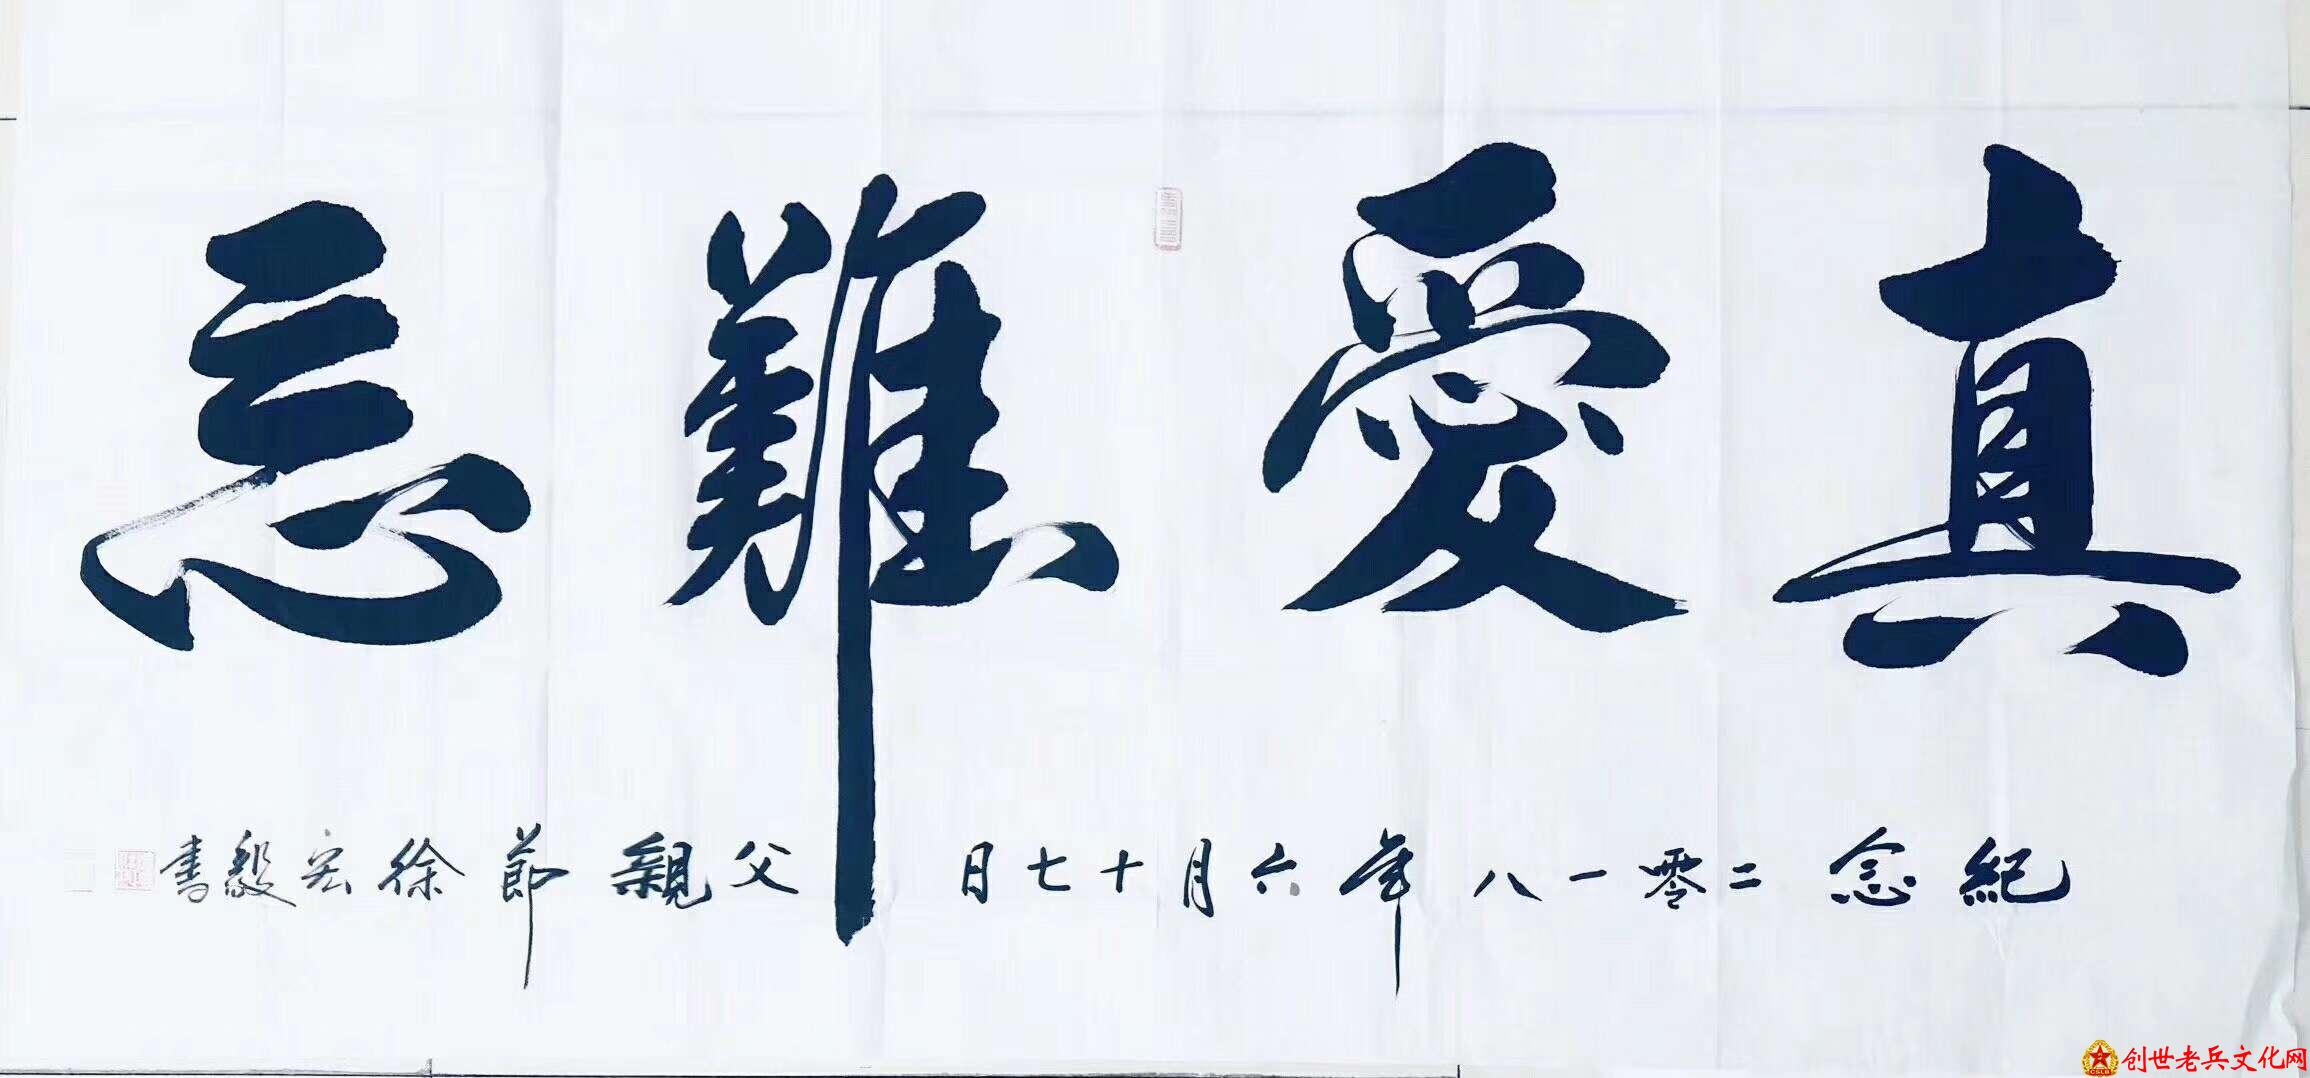 真愛難忘
紀念二零一八年六月十七日父親節徐宏毅書
创世老兵文化网
CSLB